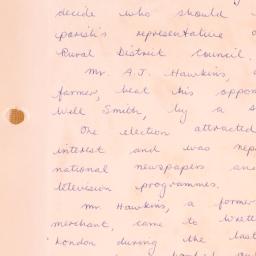 decide who should
parish's representative
Rural District Council.
Mr. A.J. Hawkins,
farmer, beat his oppon
Well Smith, by a s
The election attracted
interest and was rep
national newspapers an
television programmes.
Mr. Hawkins, a former
merchant, came to
London during the last